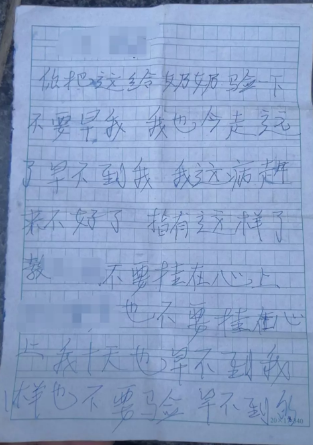 你把这给奶奶验一下
不要早我 我也今走远
了早不到我 我这病
不好了 指有这样了
教 不要挂在心上
也不要挂在心
上我十天也早不到我
样也不要 早不到的